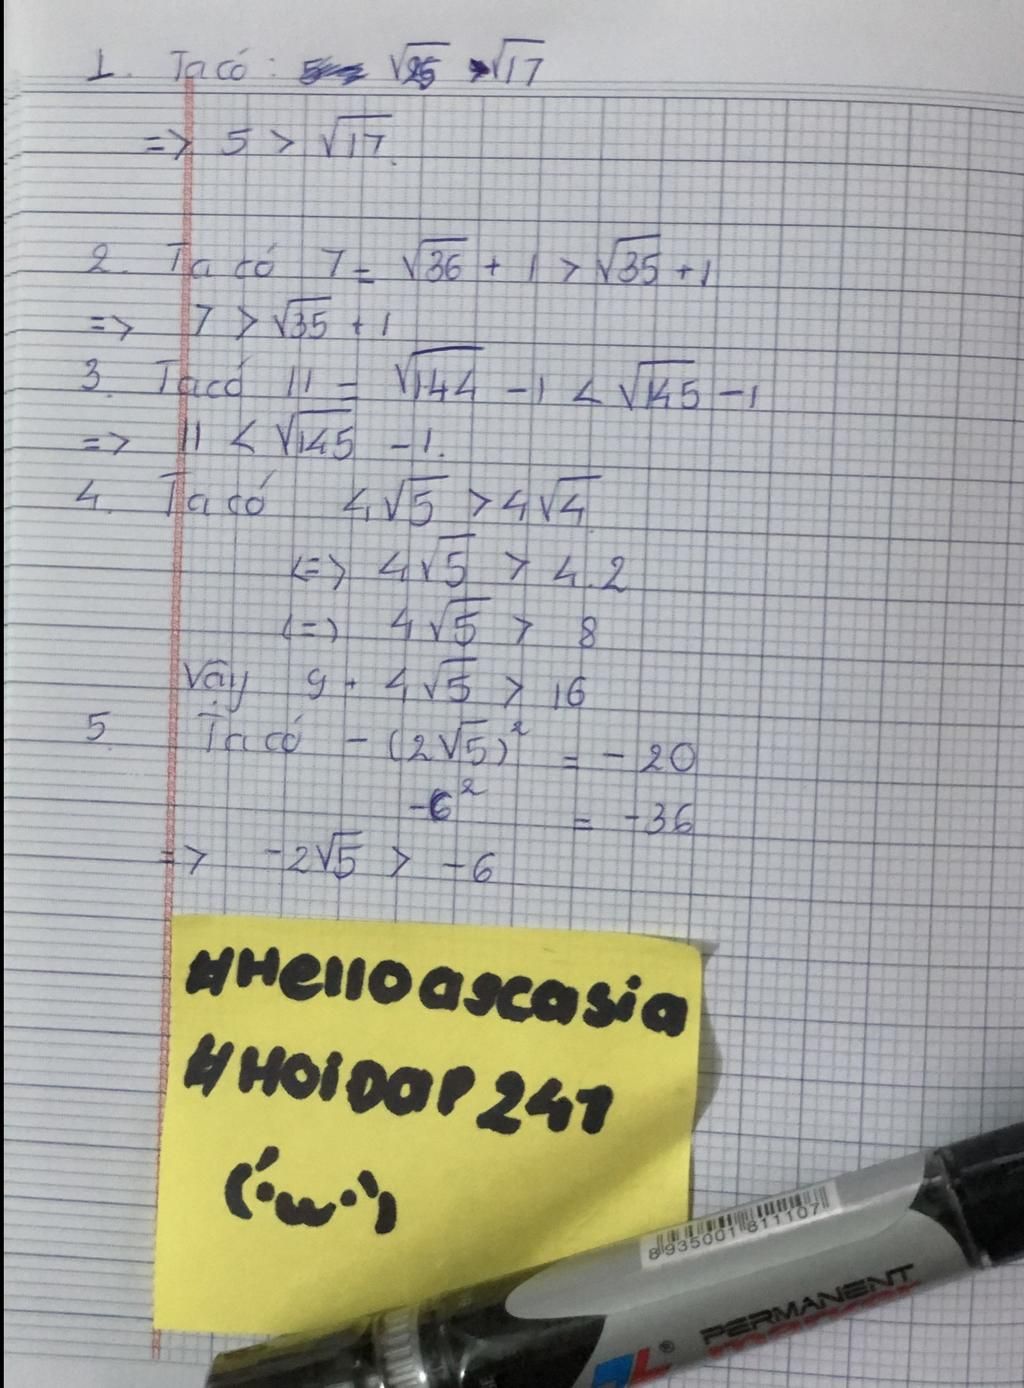 1. Ta có: √25 > √17
=> 5 > √17.
2. Ta có 7 = √36 + 1 > √35 + 1
=> 7 > √35 + 1
3. Ta có 11 = √144 - 1 < √145 - 1
=> 11 < √145 - 1.
4. Ta có 4√5 > 4√4
<=> 4√5 > 4.2
<=> 4√5 > 8
Vậy 9 + 4√5 > 16
5. Ta có - (2√5)² = - 20
-6² = -36
=> -2√5 > -6
#Helloagcasia
#HOiDaP247
(´·ω·`)
8935001 811107
PERMANENT